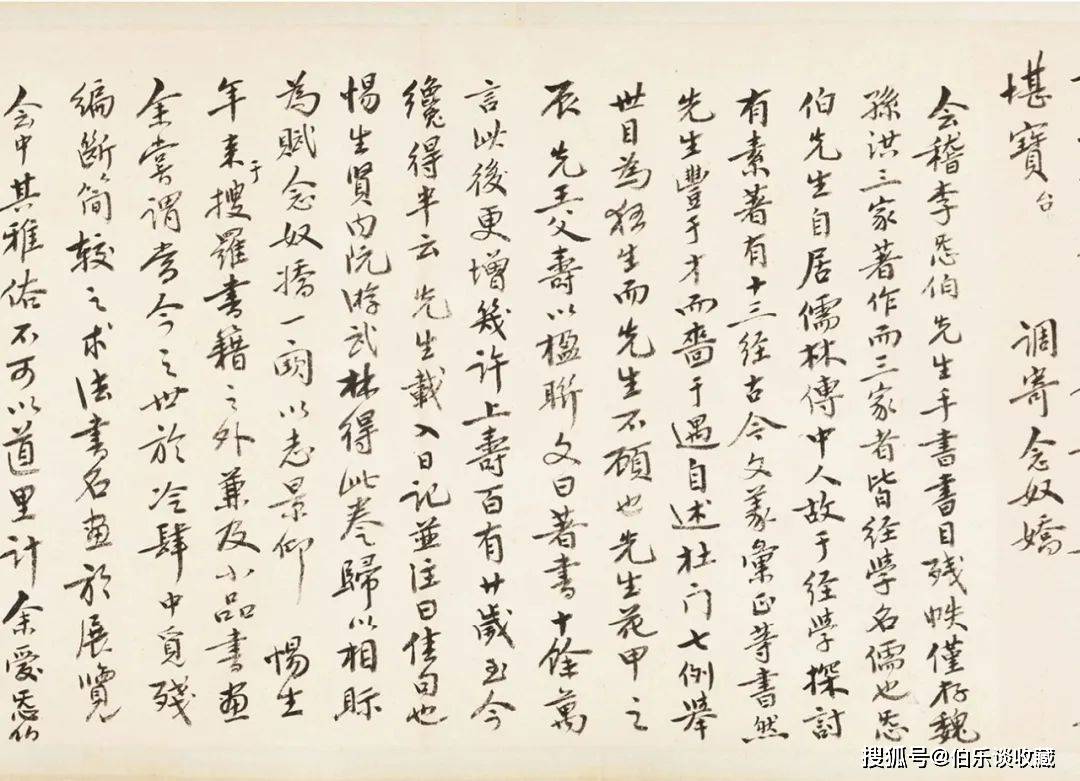 堪寶台 调寄念奴嬌
会稽李㤅伯先生手書書目残帙僅存魏
孫洪三家著作而三家者皆经學名儒也㤅
伯先生自居儒林傳中人故于经學探討
有素著有十三经古今文義彙正等書然
先生豐于才而嗇于遇自述杜门七例举
世目为狂生而先生不顾也先生花甲之
辰先王父壽以楹聯文曰著書十餘萬
言此後更增幾许上壽百有廿歲至今
纔得半云先生載入日記並注曰佳句也
惕生賢内阮游武林得此卷歸以相眎
为赋念奴嬌一阕以志景仰 惕生
年来于搜羅書籍之外兼及小品書畫
余嘗谓當今之世於冷肆中覓残
编断簡较之求法書名畫於展覽
会中其雅俗不可以道里计余愛㤅伯
搜狐号@伯乐谈收藏